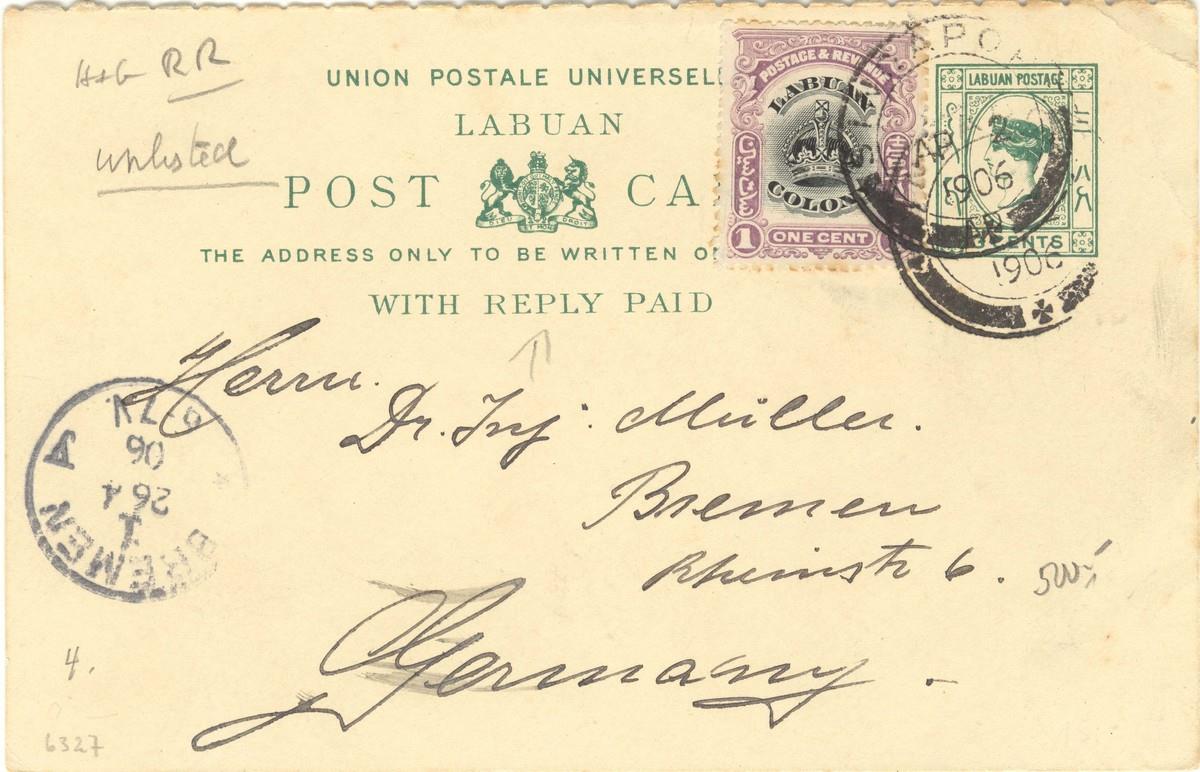 H+G RR
unlisted
UNION POSTALE UNIVERSELL
LABUAN
POST CA
THE ADDRESS ONLY TO BE WRITTEN O
WITH REPLY PAID
POSTAGE & REVENUE
LABUAN
COLON
1 ONE CENT
LABUAN POSTAGE
CENTS
APO
MAR
1906
AP
1906
Herrn.
Dr. Ing. Müller.
Bremen
Rheinstr 6.
Germany.
BREMEN
1
26 4
06
6-7V
A
4.
6327